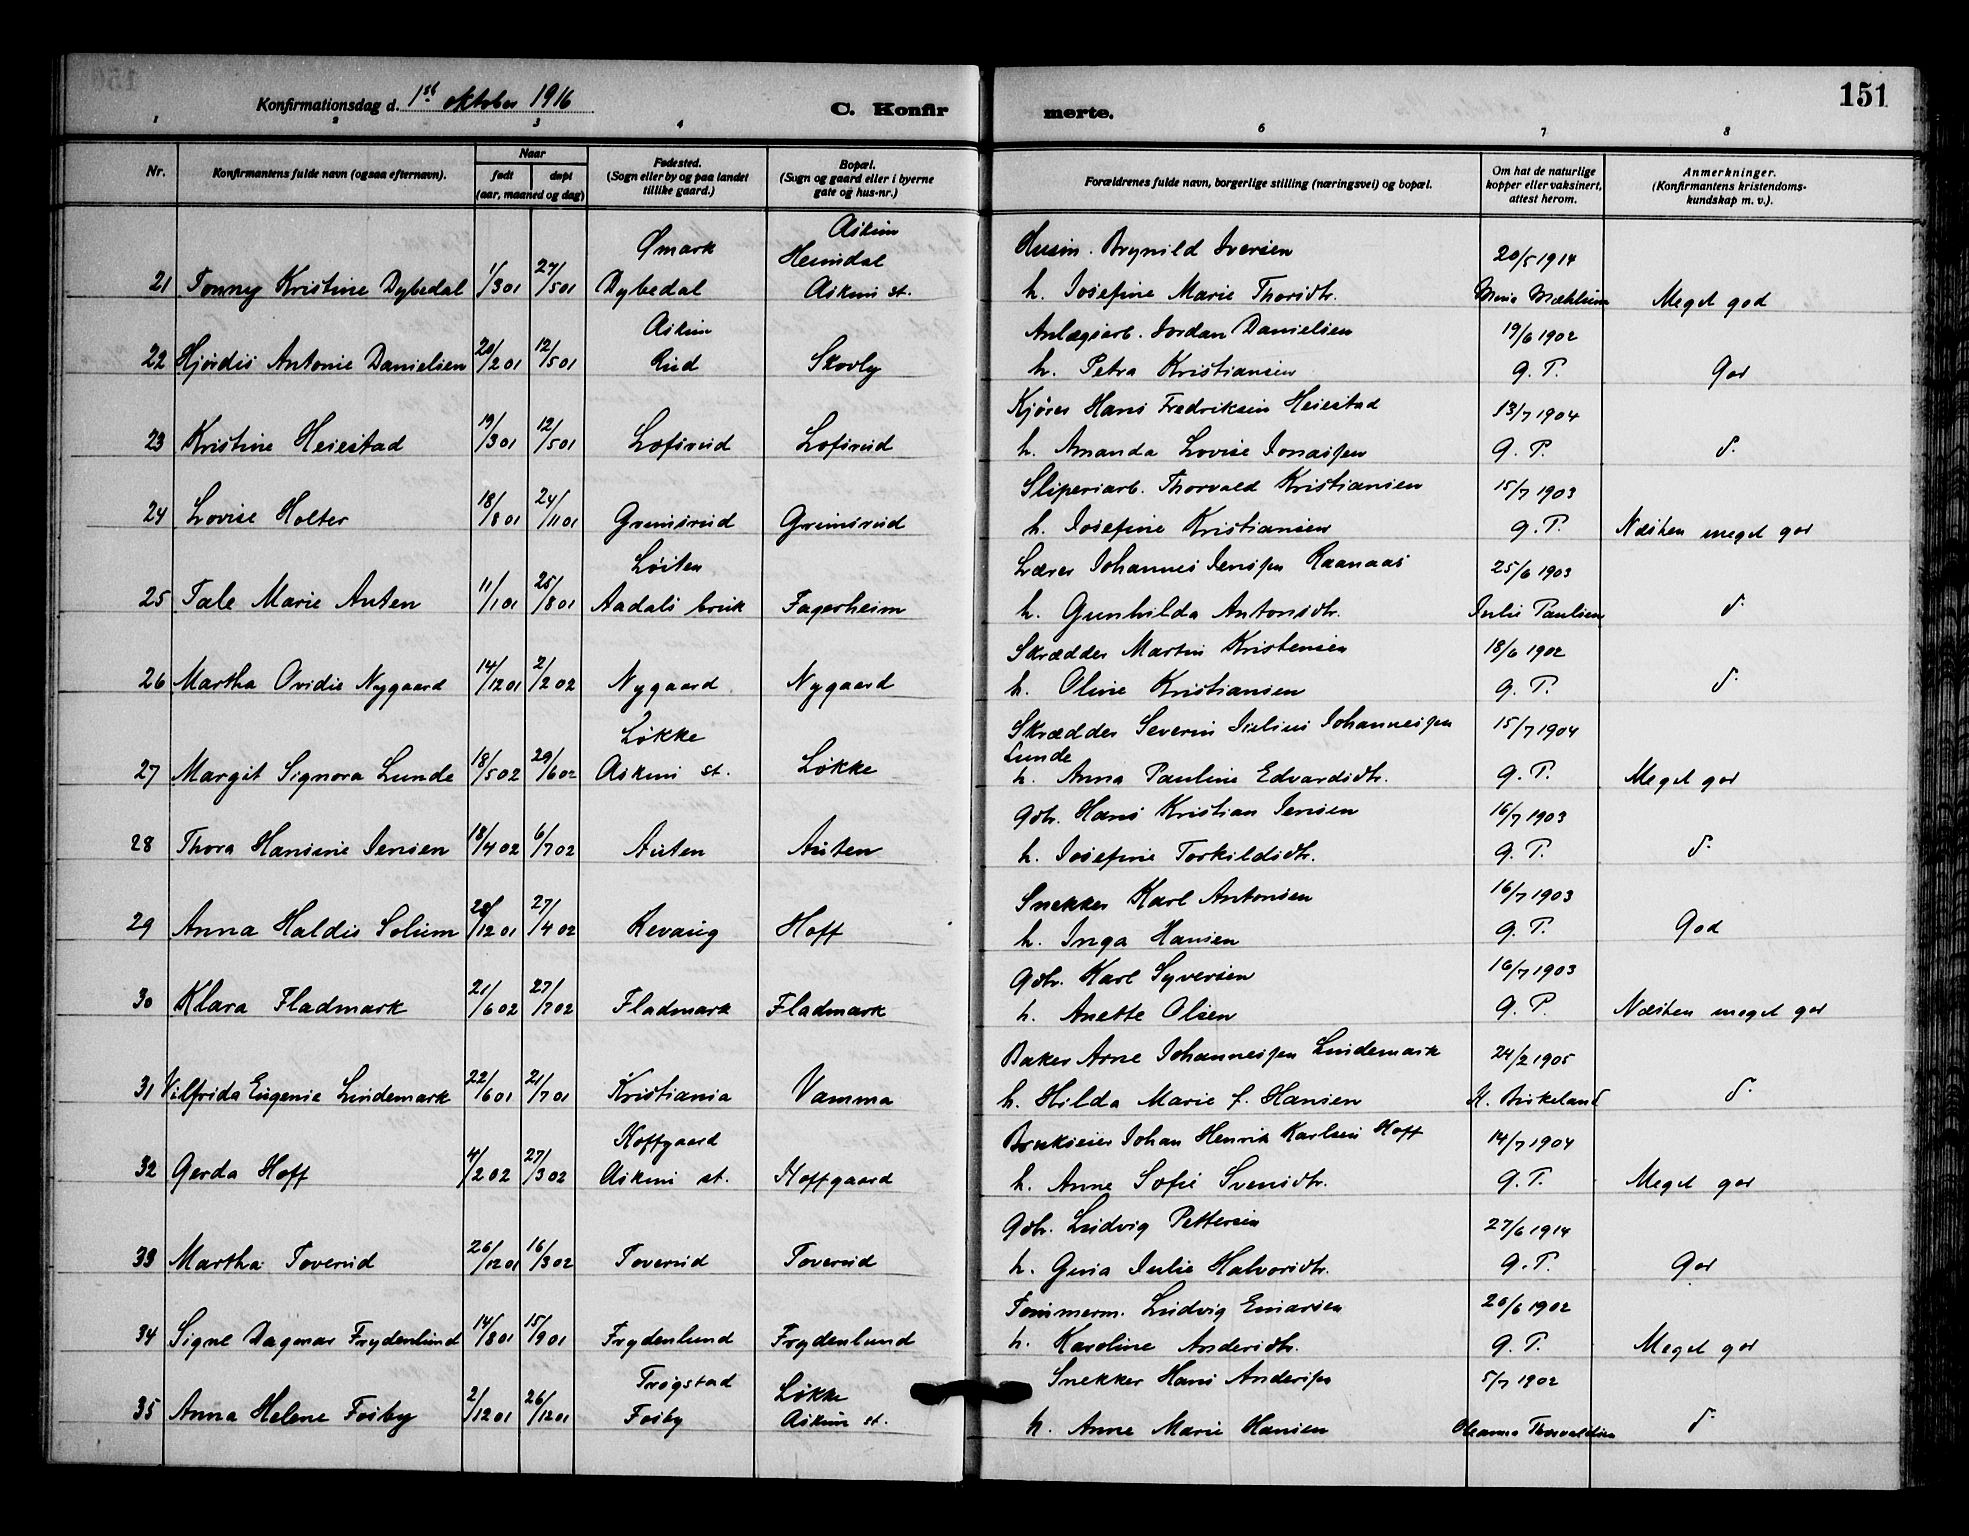 151
Konfirmationsdag d. 1ste oktober 1916
C. Konfirmerte.
1 2 3 4 6 7 8
Nr.
Konfirmantens fulde navn (ogsaa efternavn).
Naar
født døpt
(aar, maaned og dag)
Fødested.
(Sogn eller by og paa landet
tillike gaard.)
Bopæl.
(Sogn og gaard eller i byerne
gate og hus-nr.)
Forældrenes fulde navn, borgerlige stilling (næringsvei) og bopæl.
Om hat de naturlige
kopper eller vaksinert,
attest herom.
Anmerkninger.
(Konfirmantens kristendoms-
kundskap m. v.).
Ømark Askim Brynild Iversen 20/5 1914
Hemdal
21 Tonny Kristine Dybedal 1/3 01 27/5 01 Dybedal Askim st. h. Josefine Marie Thorsdtr. Mæhlum Meget god
Askim Anlægsarb. Jordan Danielsen 19/6 1902
22 Hjørdis Antonie Danielsen 20/2 01 12/5 01 Rud Skovly h. Petra Kristiansen G. P. God
Kjører Hans Fredriksen Heiestad 13/7 1904
23 Kristine Heiestad 19/3 01 12/5 01 Løfsrud Løfsrud h. Amanda Lovise Jonassen G. P. d.
Sliperiarb. Thorvald Kristiansen 15/7 1903
24 Lovise Holter 18/8 01 24/11 01 Grimsrud Grimsrud h. Josefine Kristiansen G. P. Næsten meget god
Løiten Lærer Johannes Jenssen Raanaas 25/6 1903
25 Tale Marie Auten 11/1 01 25/8 01 Aadals bruk Fagerheim h. Gunhilda Antonsdtr. Julie Paulsen d.
Skrædder Martin Kristensen 18/6 1902
26 Martha Ovidie Nygaard 14/12 01 2/2 02 Nygaard Nygaard h. Oline Kristiansen G. P. d.
Løkke Skrædder Severin Julius Johannessen 15/7 1904
Lunde
27 Margit Signora Lunde 18/5 02 29/6 02 Askim st. Løkke h. Anna Pauline Edvardsdtr. G. P. Meget god
Gbr. Hans Kristian Jensen 16/7 1903
28 Thora Hansine Jensen 18/4 02 6/7 02 Auten Auten h. Josefine Torkildsdtr. G. P. d.
Snekker Karl Antonsen 16/7 1903
29 Anna Haldis Solum 28/12 01 27/4 02 Revaug Hoff h. Inga Hansen G. P. God
Gbr. Karl Syversen 16/7 1903
30 Klara Fladmark 21/6 02 27/7 02 Fladmark Fladmark h. Anette Olsen G. P. Næsten meget god
Baker Arne Johannessen Lindemark 24/2 1905
31 Vilfrida Eugenie Lindemark 22/6 01 21/7 01 Kristiania Vamma h. Hilda Marie f. Hansen K. Birkeland d.
Hoffgaard Brukseier Johan Henrik Karlsen Hoff 14/7 1904
32 Gerda Hoff 4/2 02 27/3 02 Askim st. Hoffgaard h. Anne Sofie Svensdtr. G. P. Meget god
Gbr. Ludvig Pettersen 27/6 1914
33 Martha Toverud 26/12 01 16/3 02 Toverud Toverud h. Gusia Julie Halvorsdtr. G. P. God
Tømmerm. Ludvig Einarsen 26/6 1902
34 Signe Dagmar Frydenlund 14/8 01 15/9 01 Frydenlund Frydenlund h. Karoline Andersdtr. G. P. Meget god
Trøgstad Løkke Snekker Hans Anderssen 5/7 1902
35 Anna Helene Fosby 2/12 01 26/12 01 Fosby Askim st. h. Anne Marie Hansen Oleanna Thorvaldsen d.